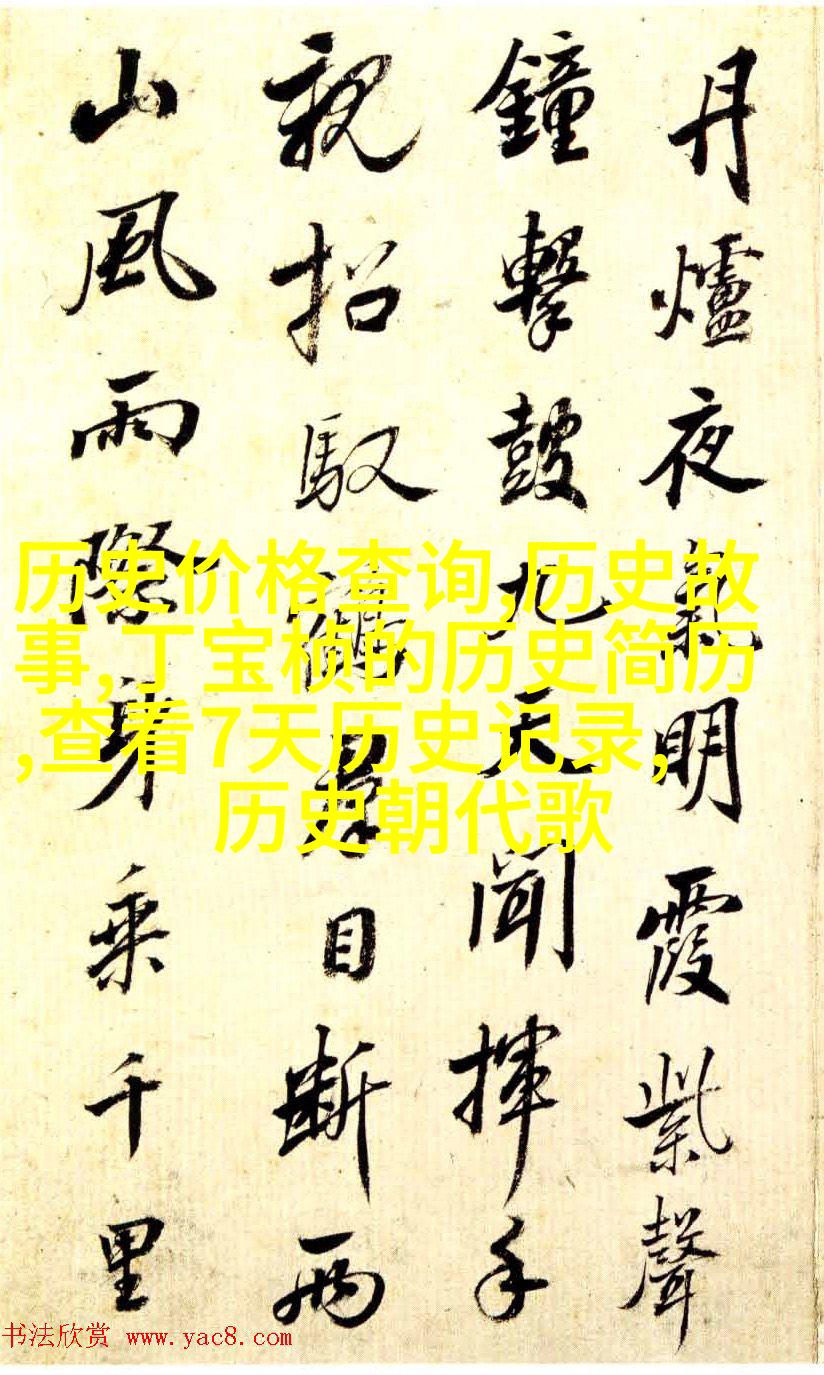 丹爐夜氣明霞紫聲
鐘擊鼓九天聞揮手
親招馭鶴羣目斷兩
山風雨際身乘千里
历史价格查询,历史故
事,丁宝桢的历史简历
,查看7天历史记录,
历史朝代歌
书法欣赏 www.yac8.com